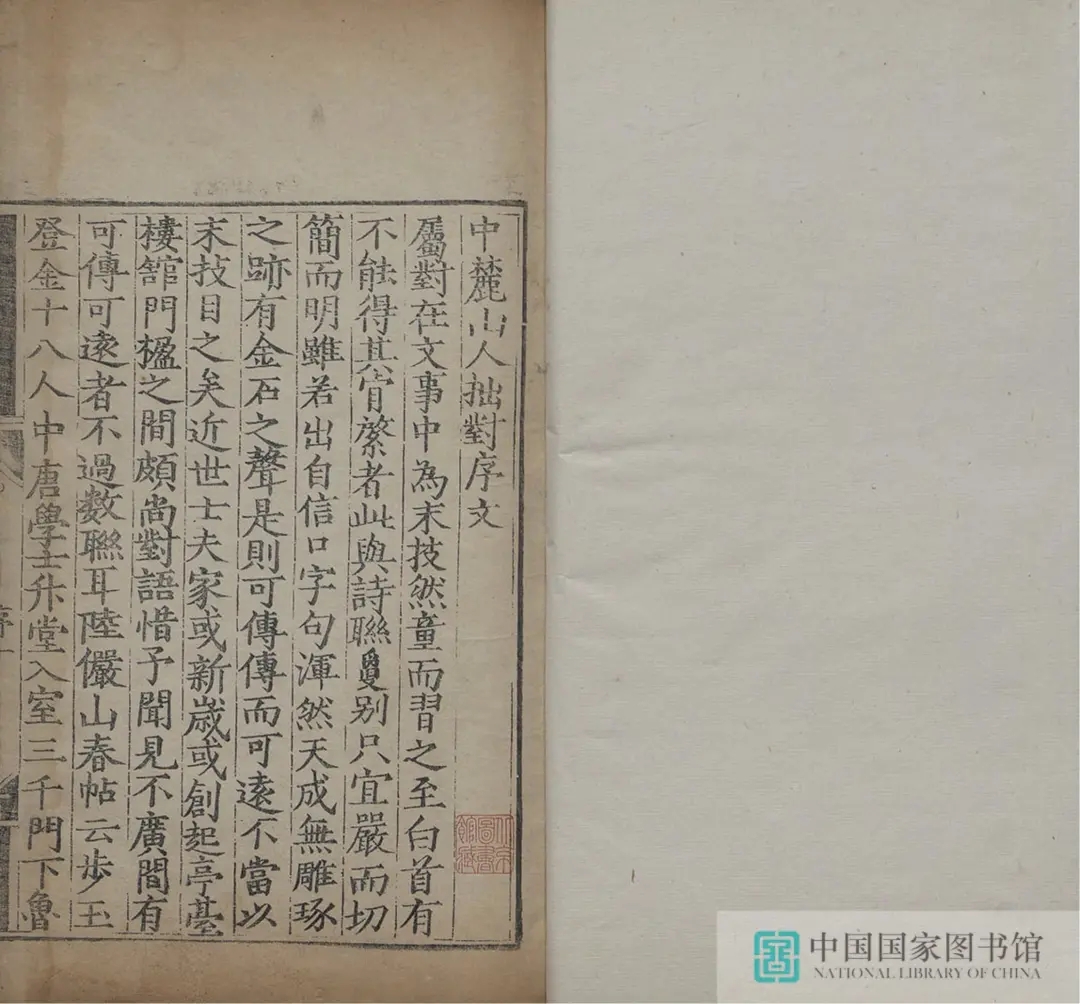 中麓山人拙對序文
屬對在文事中為末技然童而習之至白首有
不能得其肯綮者此與詩聯敻别只宜嚴而切
簡而明雖若出自信口字句渾然天成無雕琢
之跡有金石之聲是則可傳傳而可遠不當以
末技目之矣近世士夫家或新歲或創起亭臺
樓館門楹之間頗尚對語惜予聞見不廣間有
可傳可遠者不過数聯耳陸儼山春帖云步玉
登金十八人中唐學士升堂入室三千門下魯
序一
北京圖書館藏
中国国家图书馆
NATIONAL LIBRARY OF CHINA